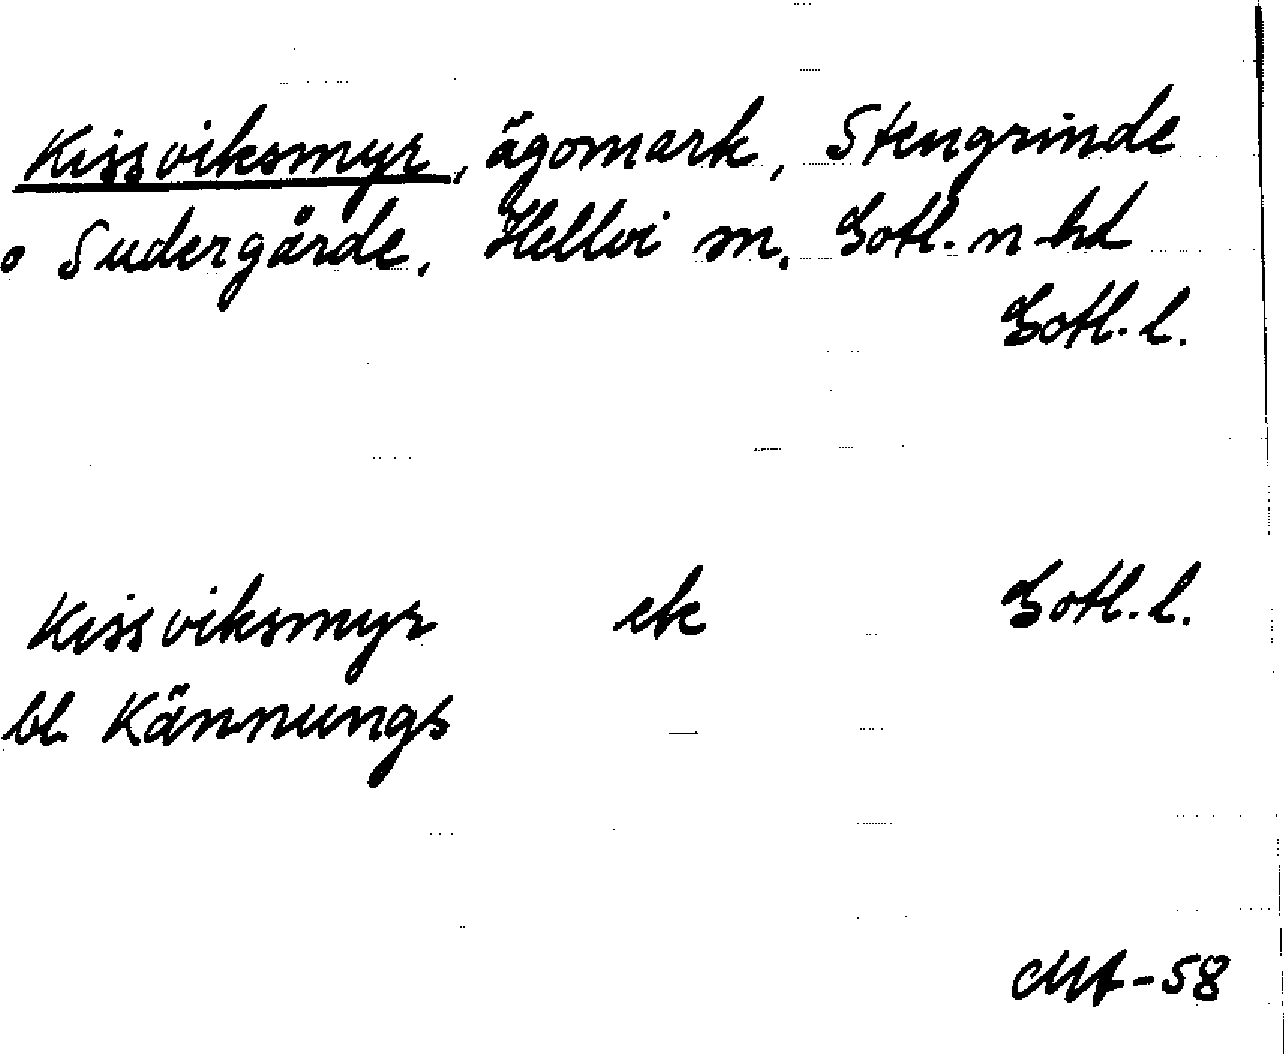 Kissviksmyr, ägomark, Stengrinde
o Sudergårde, Hellvi sn. Gotl. n hd
Gotl. l.
Kissviksmyr ek Gotl. l.
bl. Kännungs